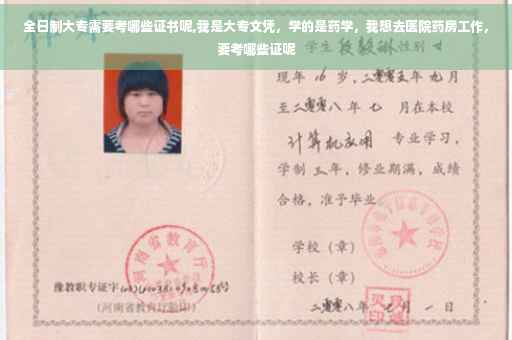 全日制大专需要考哪些证书呢,我是大专文凭，学的是药学，我想去医院药房工作，
要考哪些证呢
学生
性别 女
现年 16 岁，二零零五年 九月
至二零零八年 七 月在本校
计算机应用 专业学习，
学制 三年，修业期满，成绩
合格，准予毕业
学校（章）
校长（章）
河南省教育厅
豫教职专证字
（河南省教育厅验印）
二零零八年 月 一 日